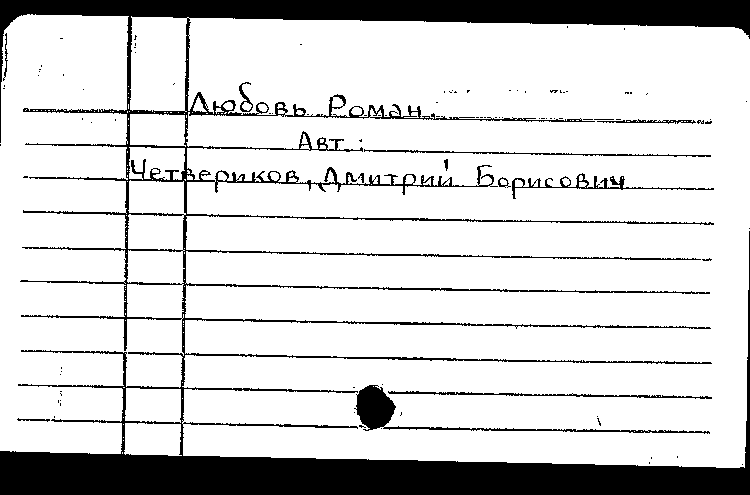 Любовь Роман.
Авт.:
Четвериков, Дмитрий Борисович